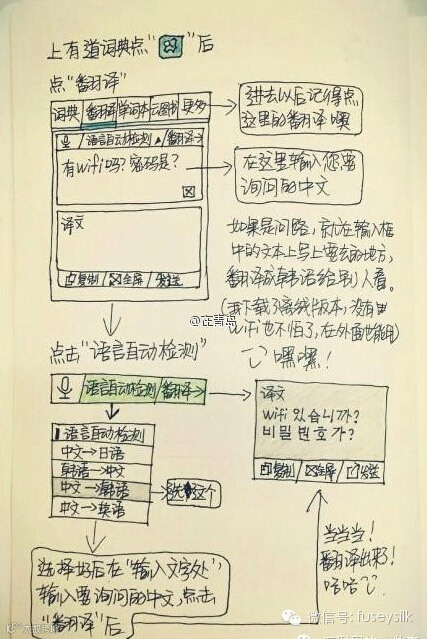 上有道词典点“ ”后
点“翻译”
词典 翻译 单词本 云图书 更多
进去以后记得点
这里的翻译噢
语言自动检测 ▲ 翻译→
有wifi吗?密码是?
在这里输入您要
询问的中文
译文
复制 全屏 发送
如果是问路,就在输入框
中的文本上写上要去的地方,
翻译成韩语给别人看。
(我下载了离线版本,没有
wifi也不怕了,在外面也能用)
嘿嘿!
@在青岛
点击“语言自动检测”
语言自动检测 翻译→
译文
wifi 있습니까?
비밀 번호 가?
复制 全屏 发送
语言自动检测
中文→日语
韩语→中文
中文→韩语
选这个
中文→英语
当当当!
翻译出来了!
哈哈~
选择好后在“输入文字处”,
输入要询问的中文,点击
“翻译”后
微信号: fuseysilk